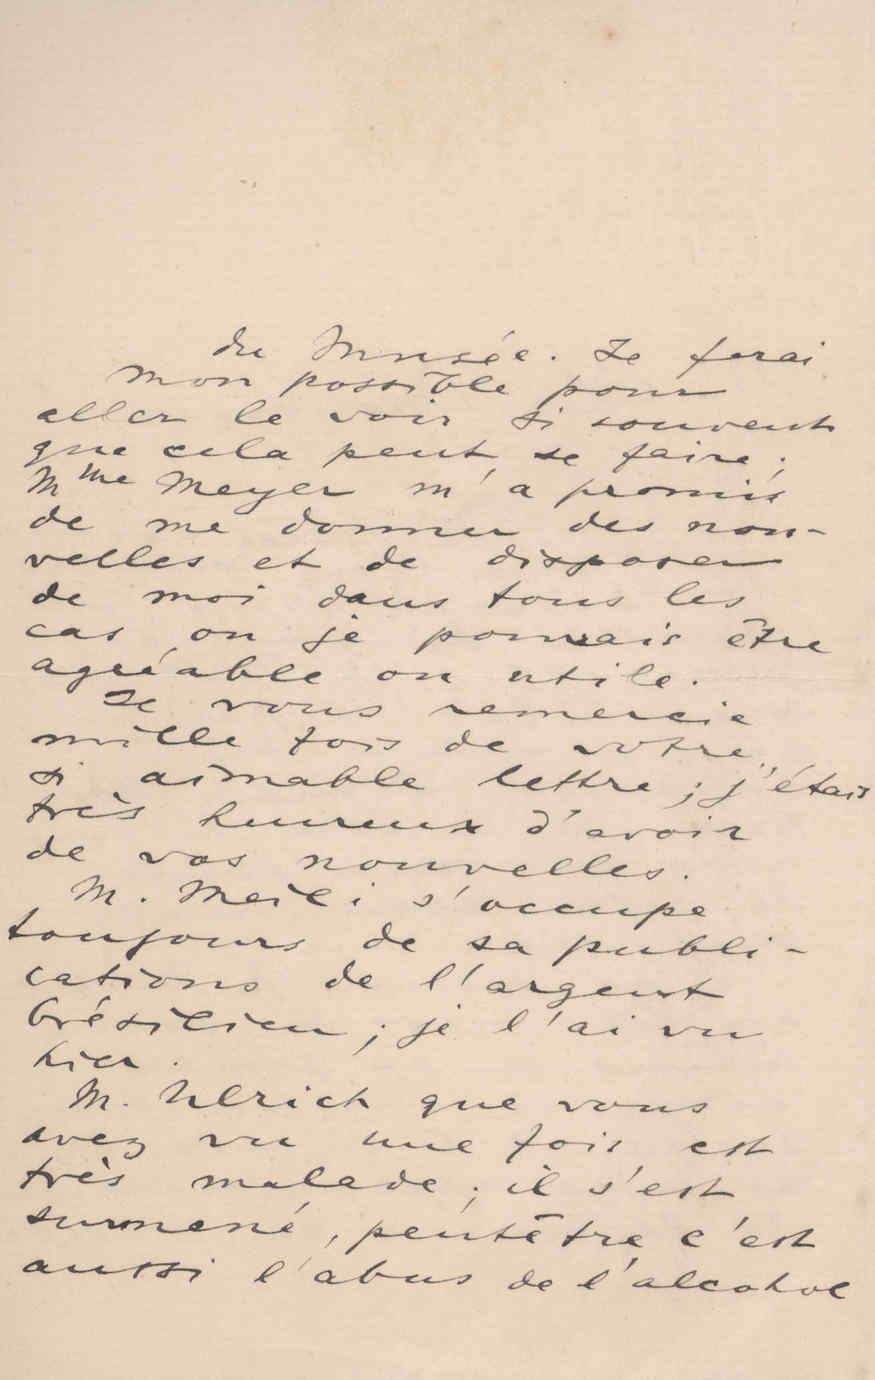 du Musée. Je ferai
mon possible pour
aller le voir si souvent
que cela peut se faire;
Mme Meyer m'a promis
de me donner des nou-
velles et de disposer
de moi dans tous les
cas, ou je pourrais être
agréable ou utile.
Je vous remercie
mille fois de votre
si aimable lettre; j'étais
très heureux d'avoir
de vos nouvelles.
M. Meili s'occupe
toujours de sa publi-
cations de l'argent
brésilien; je l'ai vu
hier.
M. Ulrich que vous
avez vu une fois est
très malade; il s'est
surmené, peutêtre c'est
aussi l'abus de l'alcohol